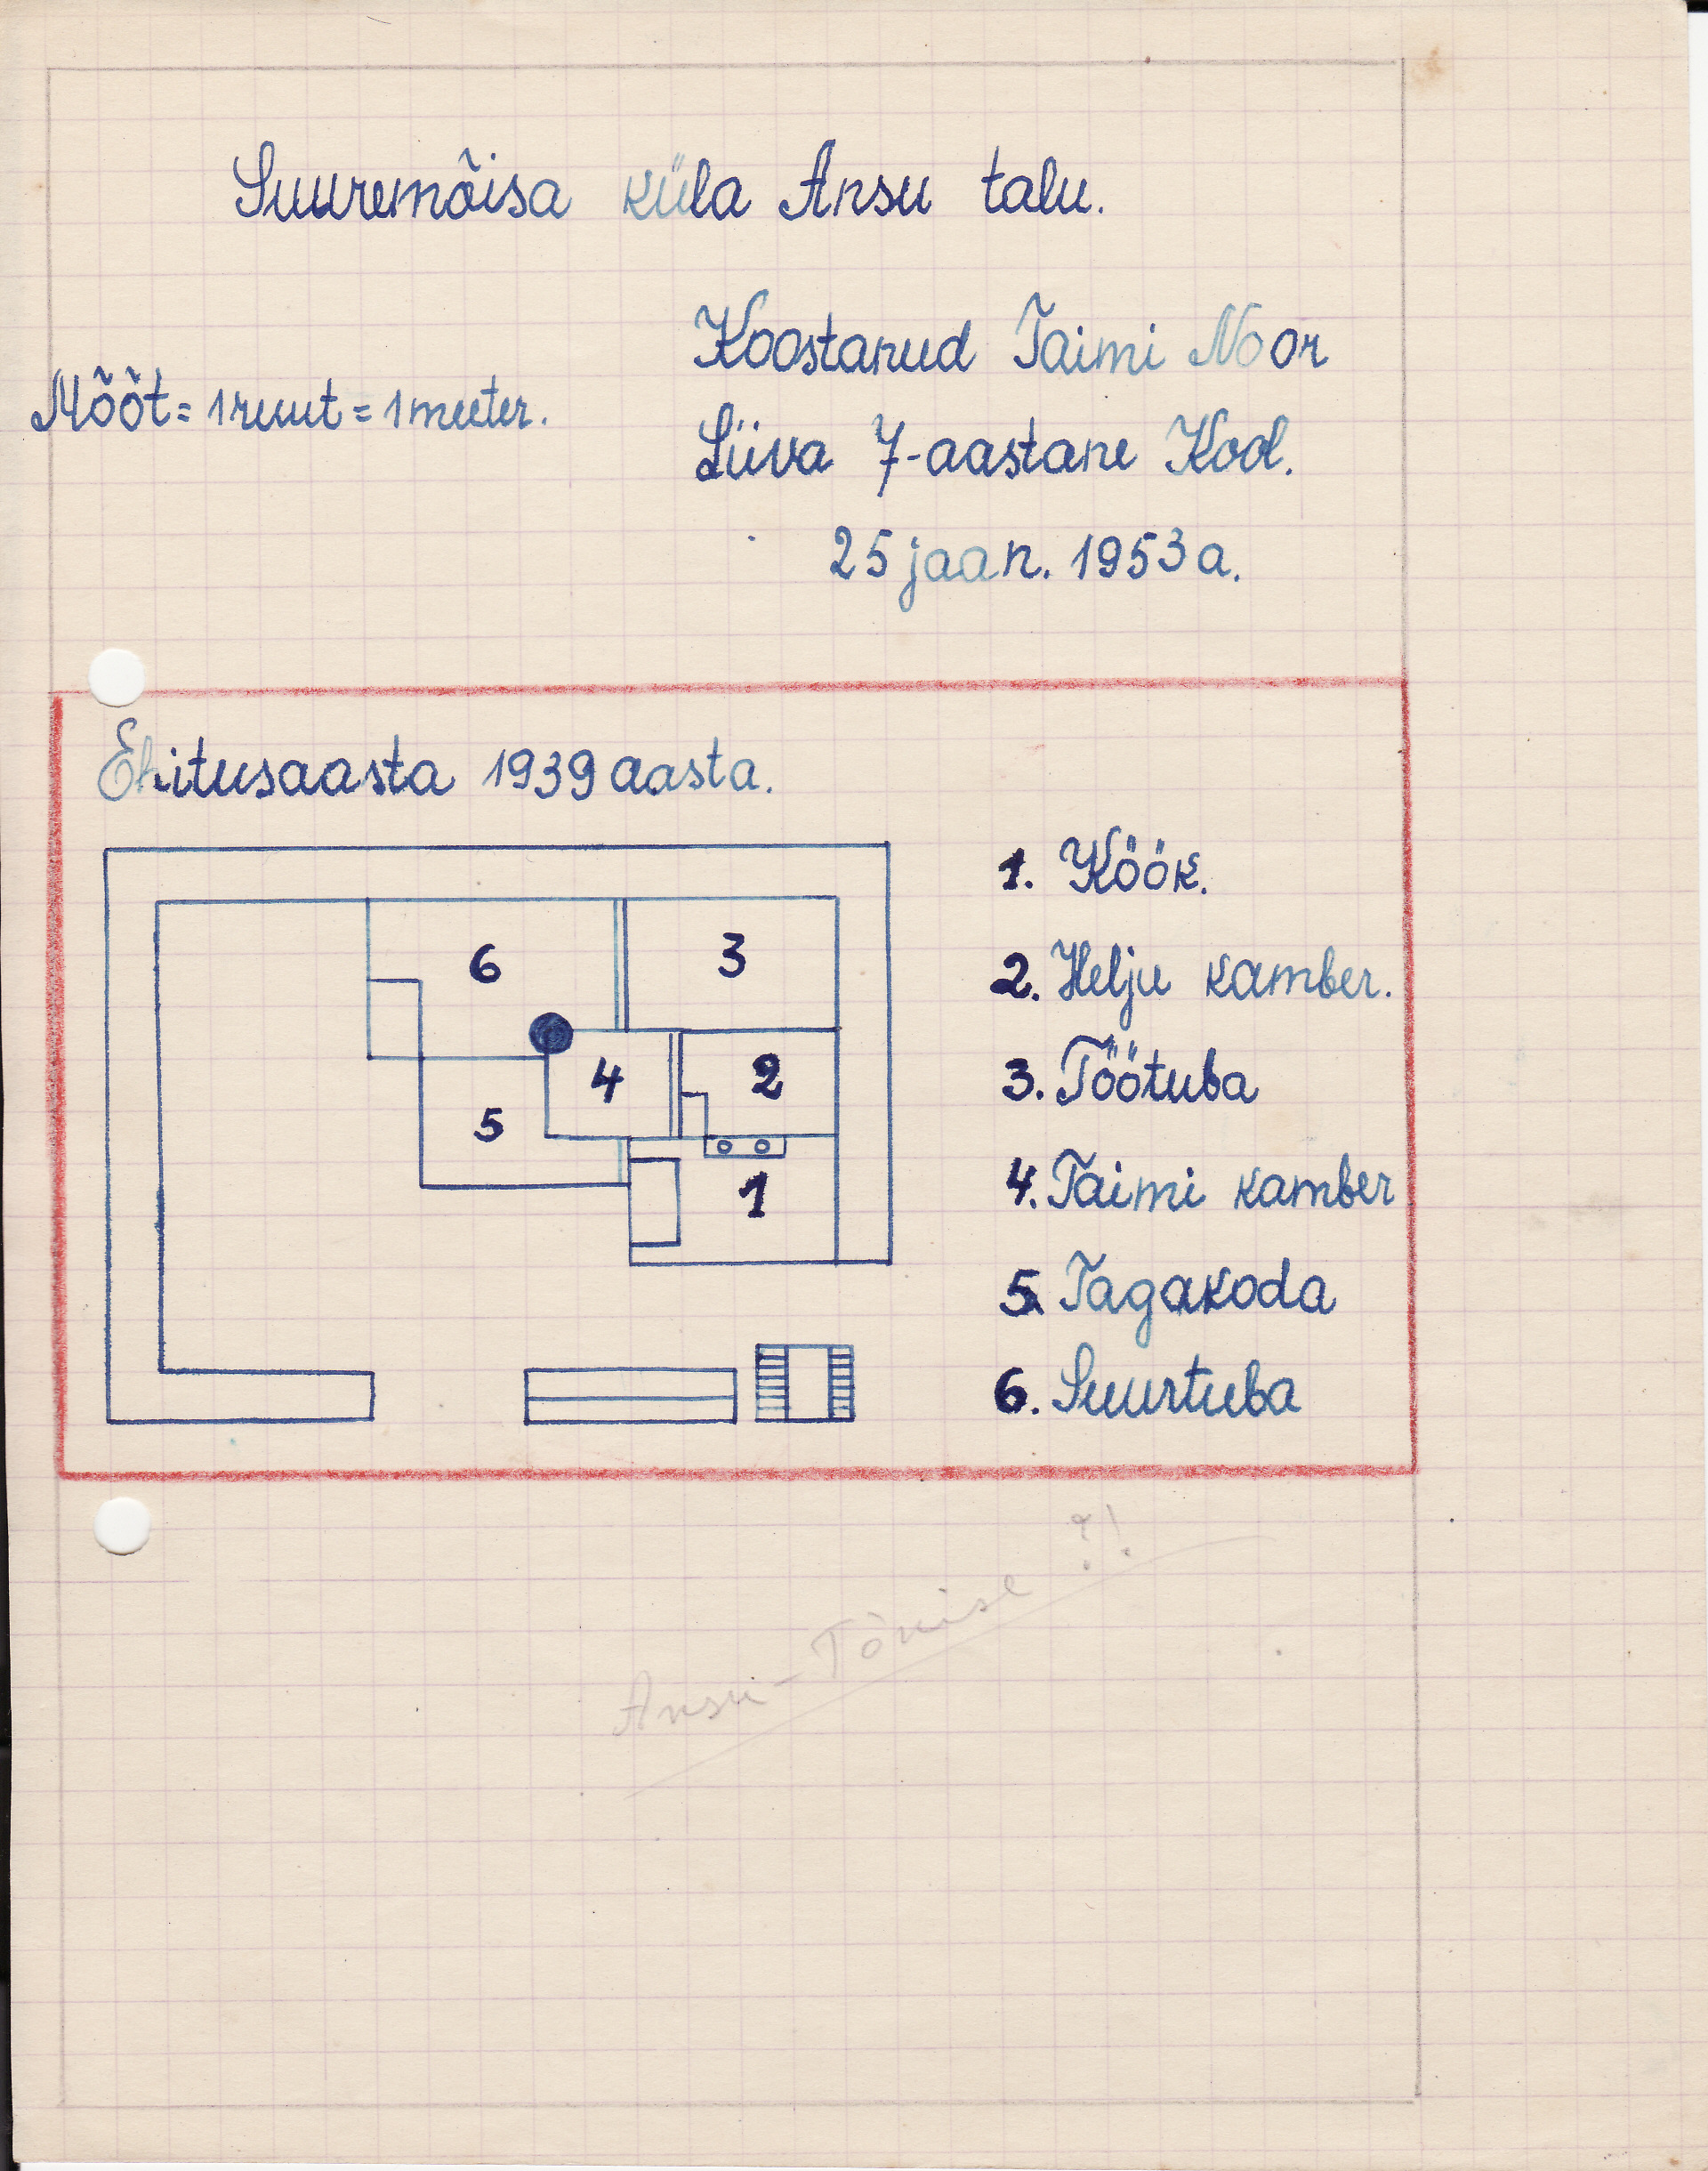 Suuremõisa küla Ansu talu.
Koostanud Taimi Noor
Mõõt = 1 ruut = 1 meeter.
Liiva 7-aastane Kool.
25 jaan. 1953 a.
Ehitusaasta 1939 aasta.
1. Köök.
2. Helju kamber.
3. Töötuba
4. Taimi kamber
5. Tagakoda
6. Suurtuba
6
3
4
2
5
1
Ansu-Tõnise ?!